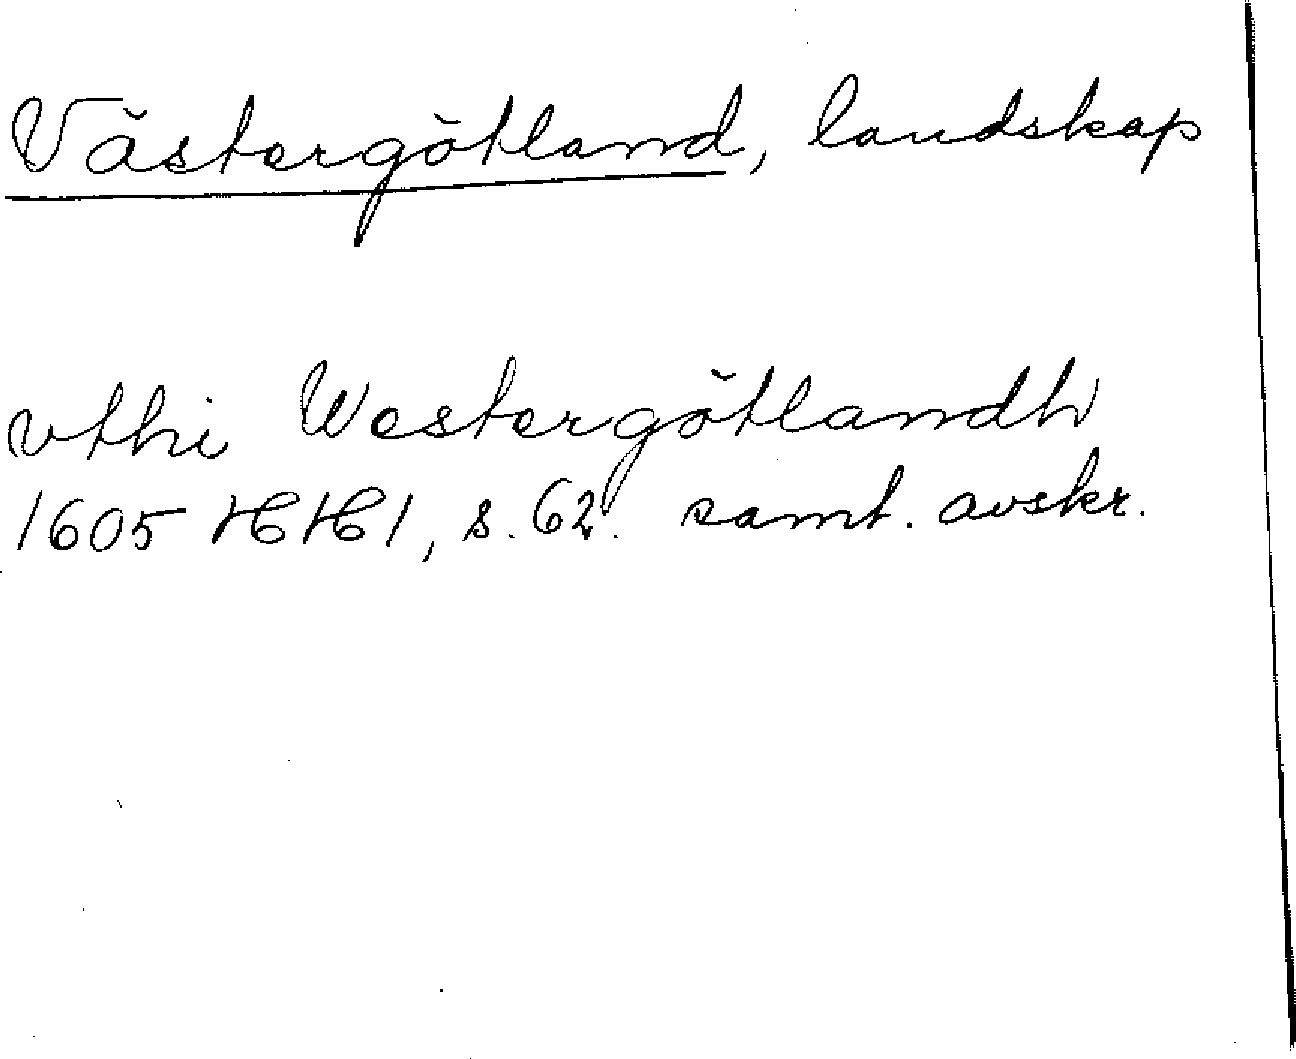 Västergötland, landskap
vthi Westergötlandh
1605 HH1, s. 62. samt. avskr.